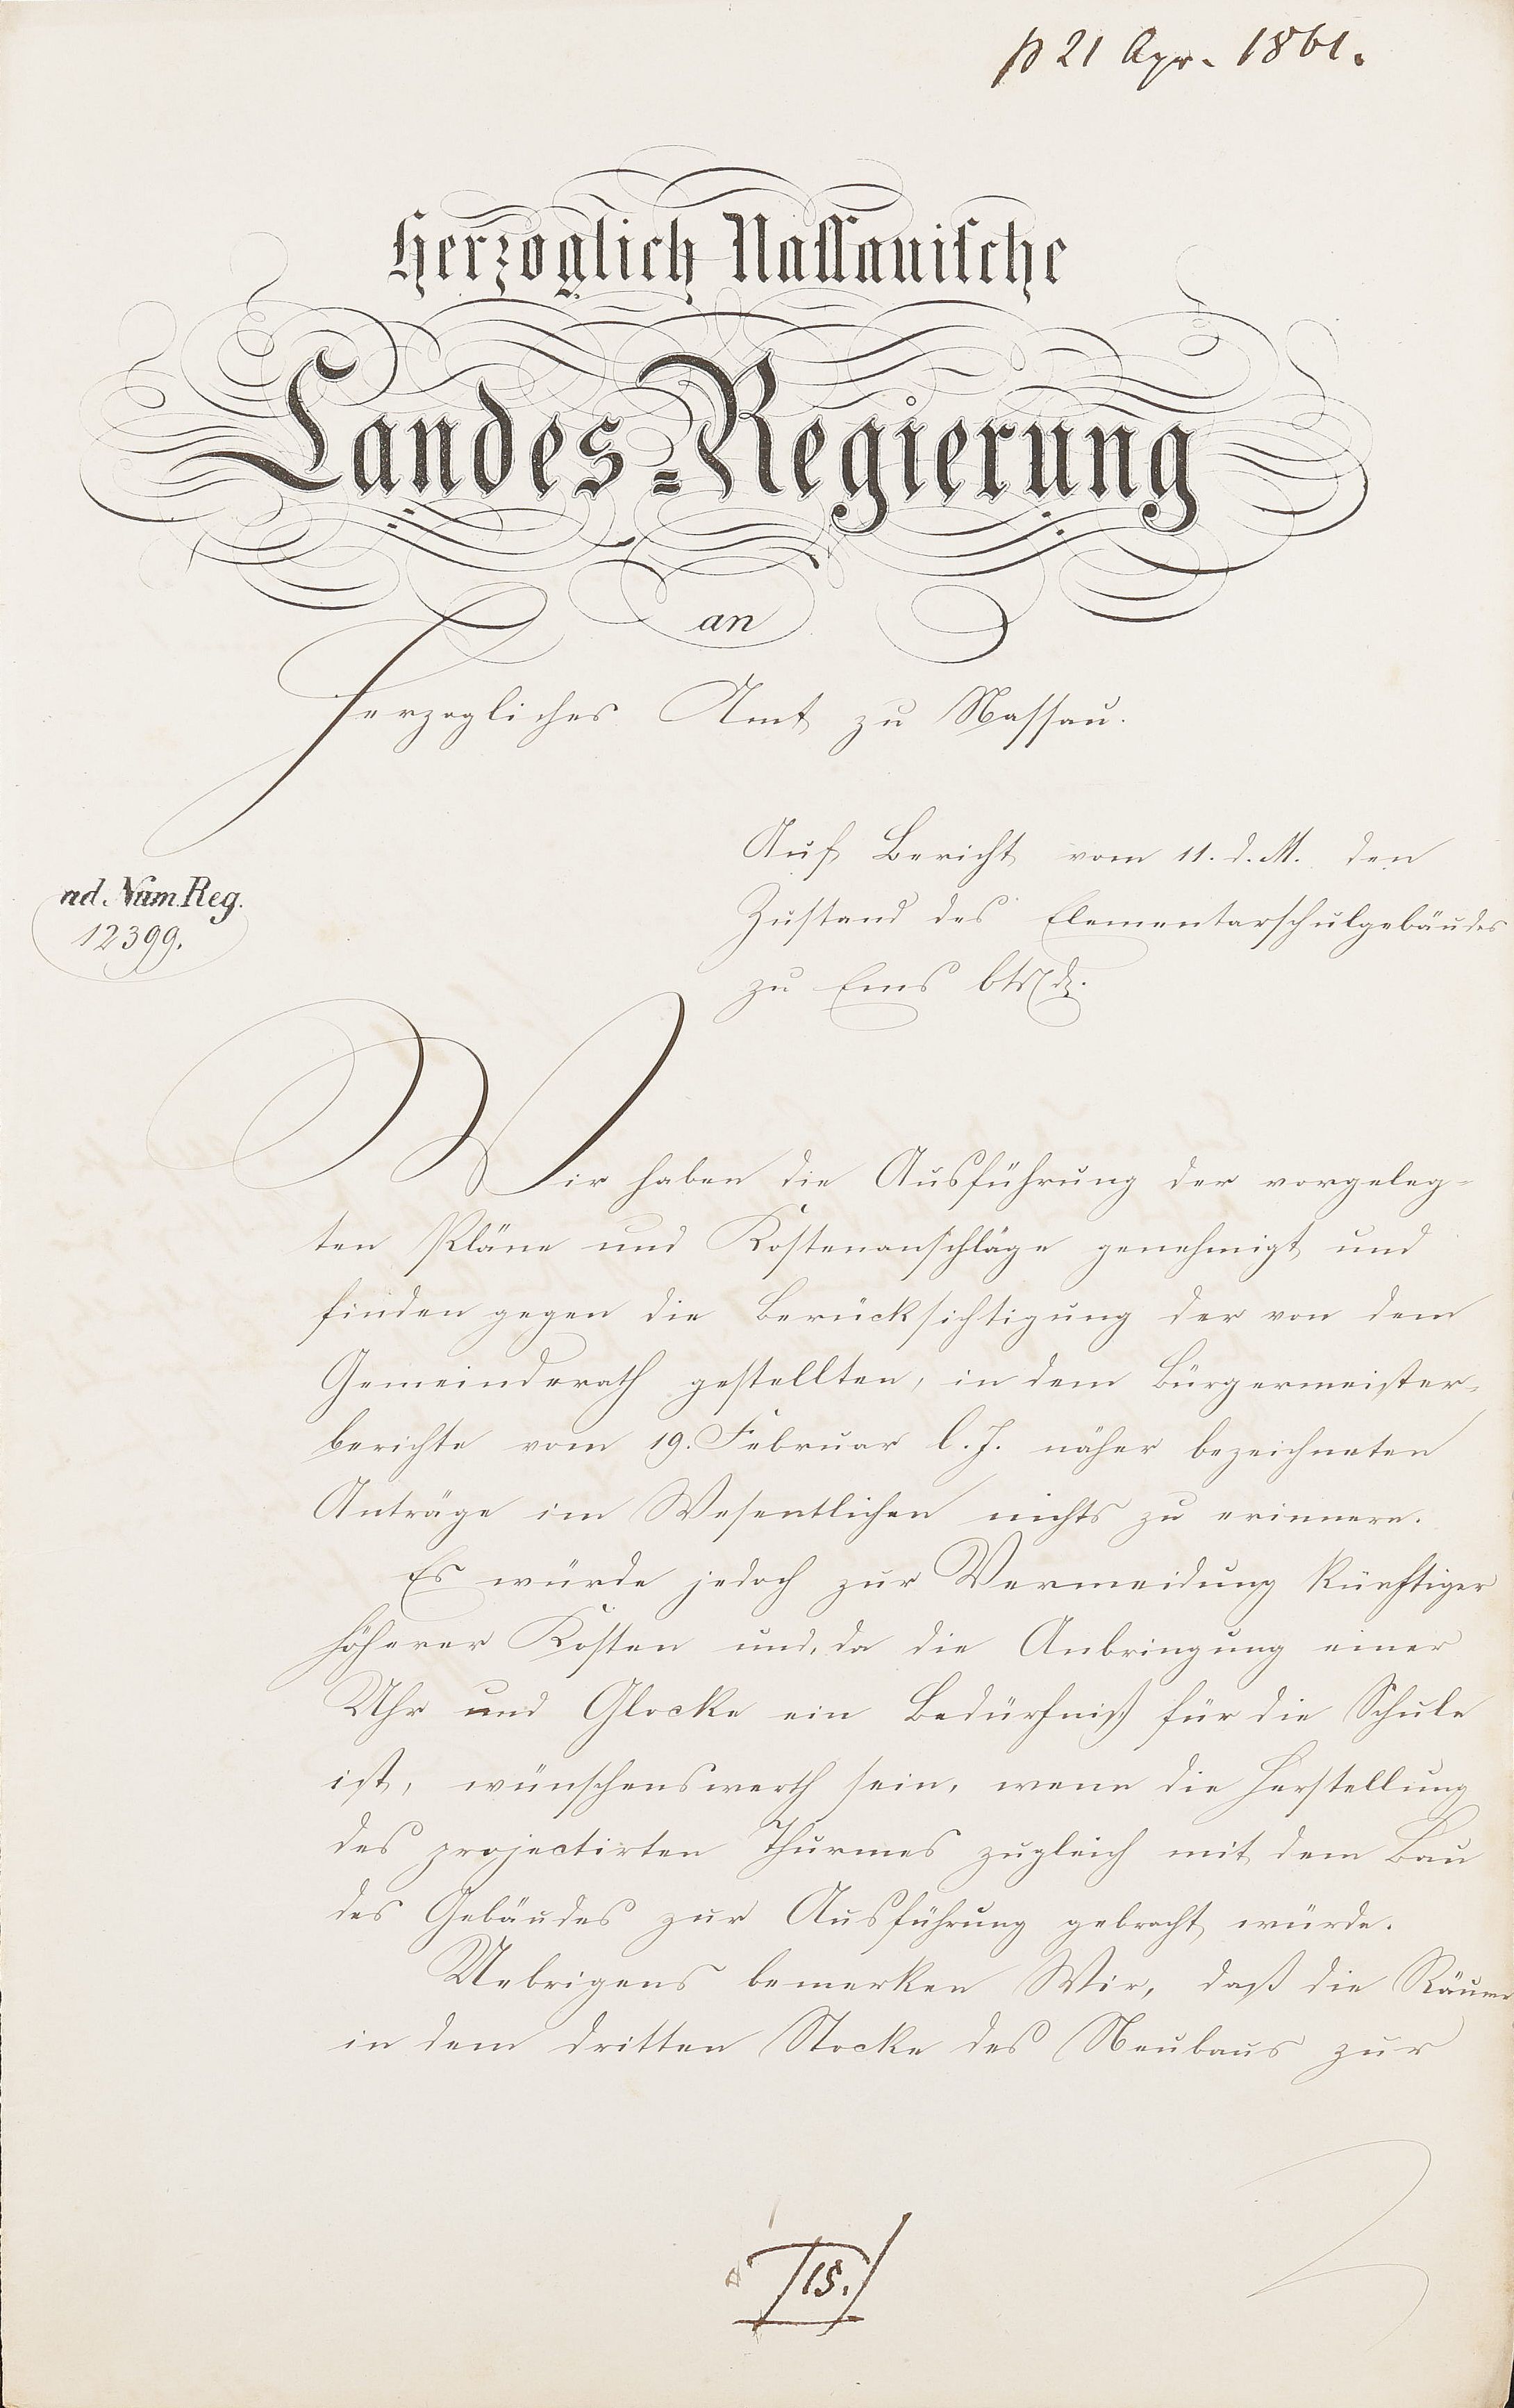 p 21 Apr. 1861.
Herzoglich Nassauische
Landes-Regierung
an
Herzogliches Amt zu Nassau.
Auf Bericht vom 11. d. M. den
ad. Num. Reg.
12399.
Zustand des Elementarschulgebäudes
zu Ems
Wir haben die Ausführung der vorgeleg-
ten Pläne und Kostenanschläge genehmigt und
finden gegen die Berücksichtigung der von dem
Gemeinderath gestellten, in dem Bürgermeister-
berichte vom 19. Februar l. J. näher bezeichneten
Anträge im Wesentlichen nichts zu erinnern.
Es würde jedoch zur Vermeidung künftiger
höherer Kosten und, da die Anbringung einer
Uhr und Glocke ein Bedürfniß für die Schule
ist, wünschenswerth sein, wenn die Herstellung
des projectirten Thurmes zugleich mit dem Bau
des Gebäudes zur Ausführung gebracht würde.
Uebrigens bemerken Wir, daß die Räume
in dem dritten Stocke des Neubaus zur
15.